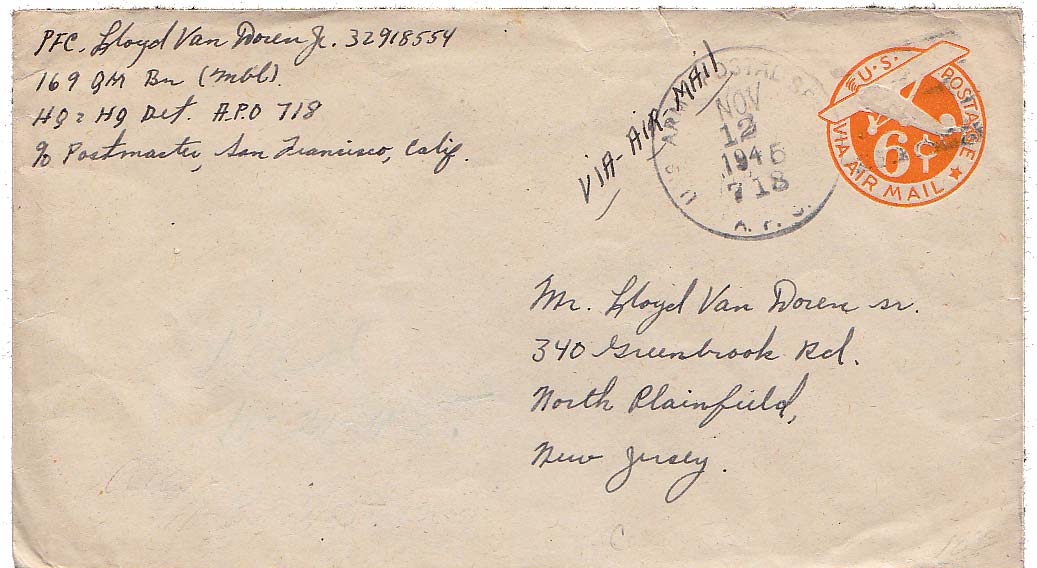 PFC. Lloyd Van Doren Jr. 32918554
169 QM Bn (Mbl).
HQ & HQ Det. A.P.O 718
c/o Postmaster, San Francisco, Calif.
VIA-AIR-MAIL
U.S. ARMY POSTAL SE
NOV
12
1945
718
A.P.O.
U.S. POSTAGE
6¢
VIA AIR MAIL
Mr. Lloyd Van Doren sr.
340 Greenbrook Rd.
North Plainfield,
New Jersey.